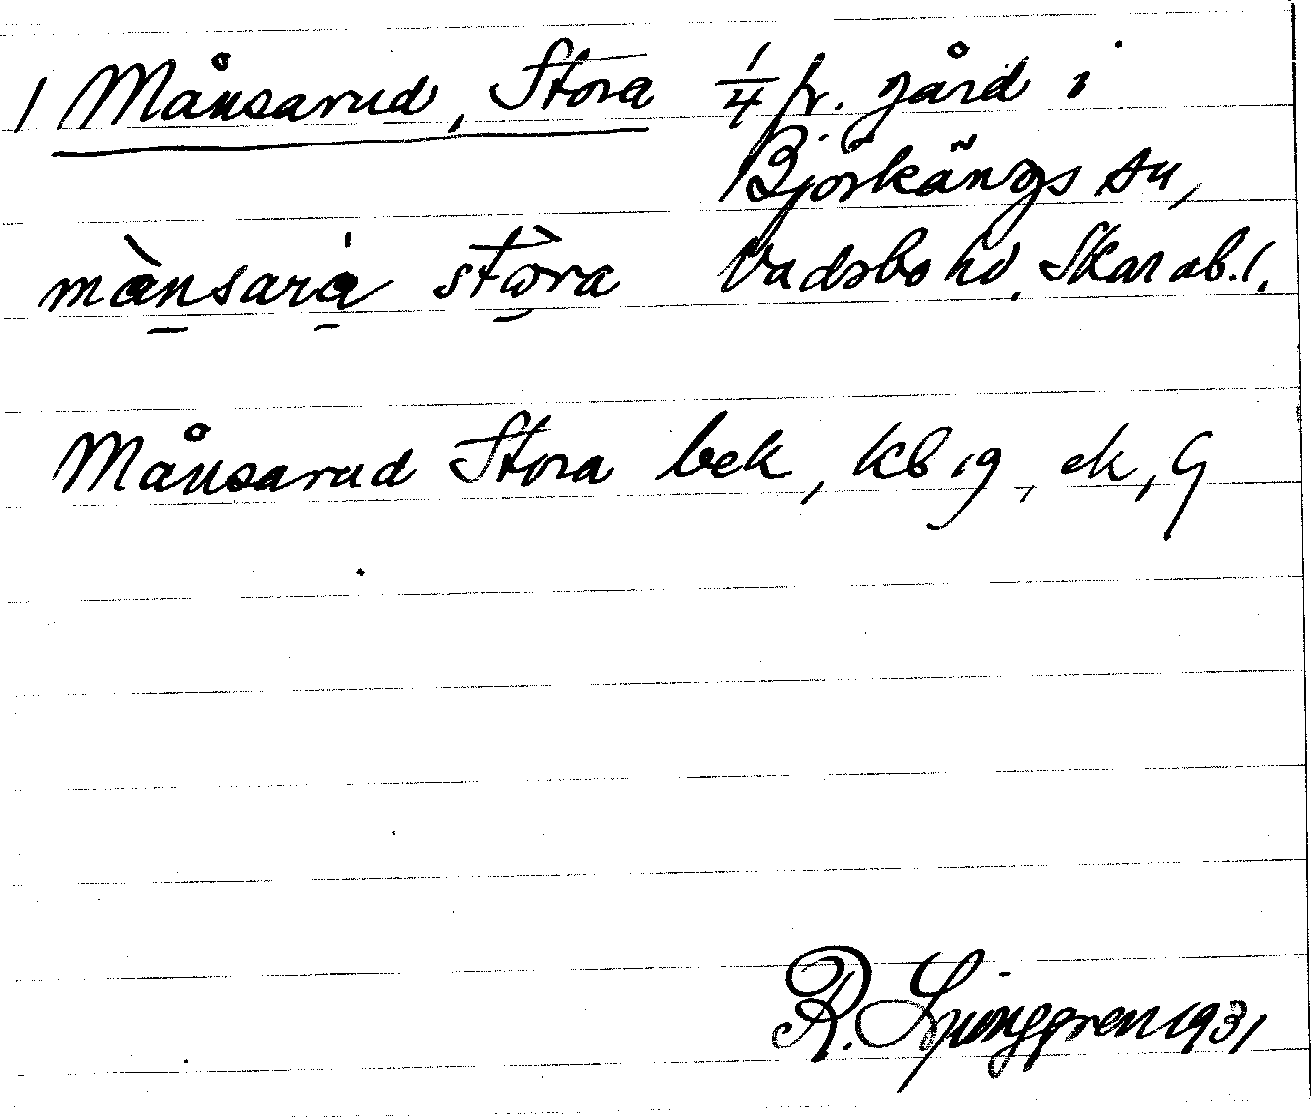 1 Månsarud, Stora 1/4 fr. gård i
Björkängs sn,
månsara stora Vadsbo hd. Skarab. l.
Månsarud Stora bek, kb 19, ek, G
R. Ljunggren 1931